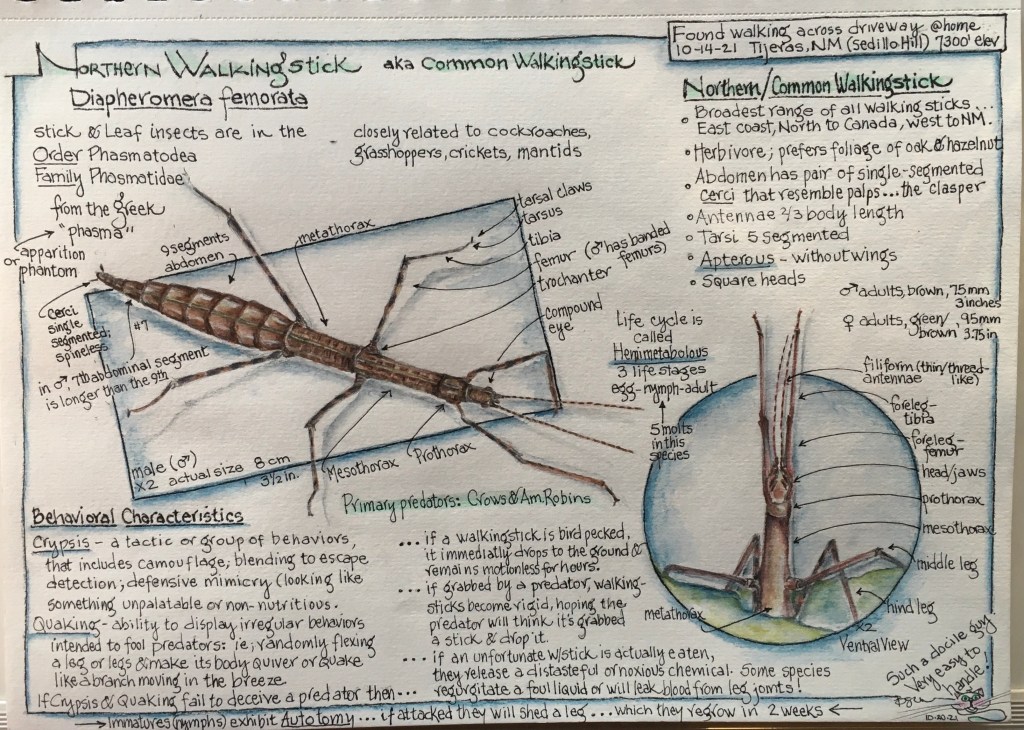 Found walking across driveway @home
10-14-21 Tijeras, NM (Sedillo Hill) 7300' elev
Northern Walkingstick aka Common Walkingstick
Diapheromera femorata
stick & Leaf insects are in the
Order Phasmatodea
Family Phasmatidae
from the greek
"phasma"
apparition
or phantom
closely related to cockroaches,
grasshoppers, crickets, mantids
Northern/Common Walkingstick
• Broadest range of all walking sticks...
East coast, North to Canada, west to NM.
• Herbivore; prefers foliage of oak & hazelnut
• Abdomen has pair of single-segmented
cerci that resemble palps...the "clasper"
• Antennae 2/3 body length
• Tarsi 5 segmented
• Apterous - without wings
• Square heads
♂ adults, brown, 75mm
3 inches
♀ adults, green/ 95mm
brown 3.75in
tarsal claws
tarsus
tibia
femur (♂ has banded
femurs)
trochanter femur
compound
eye
metathorax
9 segments
abdomen
cerci
single
segmented;
spineless
#7
in ♂, 7th abdominal segment
is longer than the 9th
male (♂)
x2 actual size 8cm
3 1/2 in.
Mesothorax
Prothorax
Primary predators: Crows & Am. Robins
Life cycle is
called
Hemimetabolous
3 life stages
egg-nymph-adult
5 molts
in this
species
filiform (thin/thread-
like)
antennae
foreleg-
tibia
foreleg-
femur
head/jaws
prothorax
mesothorax
middle leg
hind leg
metathorax
x2
Ventral View
Behavioral Characteristics
Crypsis - a tactic or group of behaviors,
that includes camouflage; blending to escape
detection; defensive mimicry (looking like
something unpalatable or non-nutritious.
Quaking - ability to display irregular behaviors
intended to fool predators: ie; randomly flexing
a leg or legs & make its body quiver or quake
like a branch moving in the breeze.
If Crypsis & Quaking fail to deceive a predator then...
... if a walkingstick is bird pecked,
it immediatly drops to the ground &
remains motionless for hours.
... if grabbed by a predator, walking-
sticks become rigid, hoping the
predator will think it's grabbed
a stick & drop it.
... if an unfortunate w/stick is actually eaten,
they release a distasteful or noxious chemical. Some species
regurgitate a foul liquid or will leak blood from leg joints!
Immatures (nymphs) exhibit Autotomy ... if attacked they will shed a leg ... which they regrow in 2 weeks
Such a docile guy
Very easy to
handle!
10-20-21